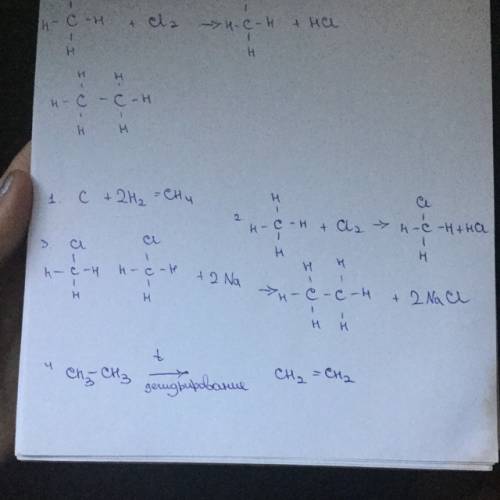 H-C-H + Cl2 → H-C-H + HCl
H
H H
H-C-C-H
H H
1. C + 2H2 = CH4
2 H
H-C-H + Cl2 → H-C-H + HCl
H
Cl
H
3. Cl Cl
H-C-H H-C-H + 2Na → H-C-C-H + 2NaCl
H H
H H
H H
4 CH3-CH3 t → CH2=CH2
дегидрирование